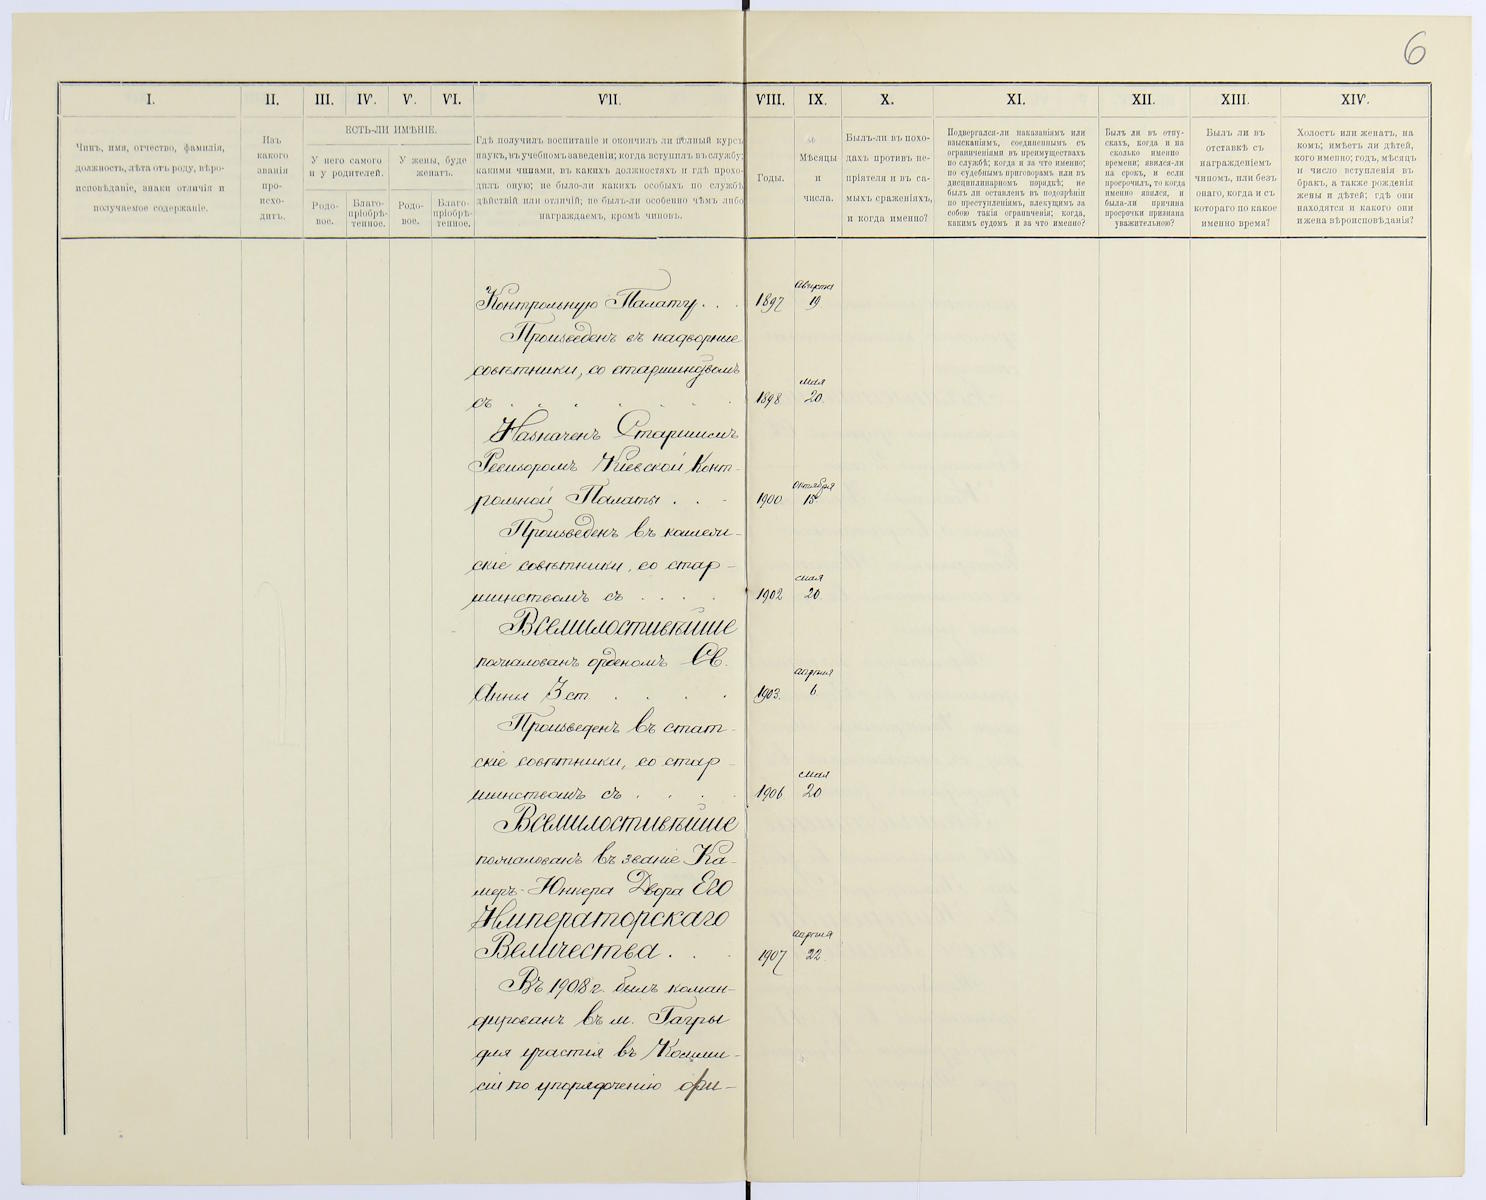 6
I. II. III. IV. V. VI. VII. VIII. IX. X. XI. XII. XIII. XIV.
Чинъ, имя, отчество, фамилія,
должность, лѣта отъ роду, вѣро-
исповѣданіе, знаки отличія и
получаемое содержаніе.
Изъ
какого
званія
про-
исхо-
дитъ.
ЕСТЬ-ЛИ ИМѢНІЕ.
У него самого
и у родителей.
У жены, буде
женатъ.
Родо-
вое.
Благо-
пріобрѣ-
тенное.
Родо-
вое.
Благо-
пріобрѣ-
тенное.
Гдѣ получилъ воспитаніе и окончилъ ли полный курсъ
наукъ, въ учебномъ заведеніи; когда вступилъ въ службу;
какими чинами, въ какихъ должностяхъ и гдѣ прохо-
дилъ оную; не было-ли какихъ особыхъ по службѣ
дѣйствій или отличій; не былъ-ли особенно чѣмъ либо
награждаемъ, кромѣ чиновъ.
Годы.
Мѣсяцы
и
числа.
Былъ-ли въ похо-
дахъ противъ не-
пріятеля и въ са-
мыхъ сраженіяхъ,
и когда именно?
Подвергался-ли наказаніямъ или
взысканіямъ, соединеннымъ съ
ограниченіями въ преимуществахъ
по службѣ; когда и за что именно;
по судебнымъ приговорамъ или въ
дисциплинарномъ порядкѣ; не
былъ ли оставленъ въ подозрѣніи
по преступленіямъ, влекущимъ за
собою такія ограниченія; когда,
какимъ судомъ и за что именно?
Былъ ли въ отпу-
скахъ, когда и на
сколько именно
времени; явился-ли
на срокъ, и если
просрочилъ, то когда
именно явился, и
была-ли причина
просрочки признана
уважительною?
Былъ ли въ
отставкѣ съ
награжденіемъ
чиномъ, или безъ
онаго, когда и съ
котораго по какое
именно время?
Холостъ или женатъ, на
комъ; имѣетъ ли дѣтей,
кого именно; годъ, мѣсяцъ
и число вступленія въ
бракъ, а также рожденія
жены и дѣтей; гдѣ они
находятся и какого они
и жена вѣроисповѣданія?
Контрольную Палату . . . 1897 Августа 19
Произведенъ въ надворные
совѣтники, со старшинствомъ
съ . . . . . . . 1898 мая 20.
Назначенъ Старшимъ
Ревизоромъ Кіевской Конт-
рольной Палаты . . . 1900 октября 15
Произведенъ въ коллеж-
скіе совѣтники, со стар-
шинствомъ съ . . . . 1902 мая 20.
Всемилостивѣйше
пожалованъ орденомъ Св.
Анны 3 ст. . . . . 1903. апрѣля 6
Произведенъ въ стат-
скіе совѣтники, со стар-
шинствомъ съ . . . . 1906 мая 20
Всемилостивѣйше
пожалованъ въ званіе Ка-
меръ-Юнкера Двора Его
Императорскаго
Величества . . . 1907 апрѣля 22.
Въ 1908 г. былъ коман-
дированъ въ м. Гагры
для участія въ Комми-
сіи по упорядоченію фи-